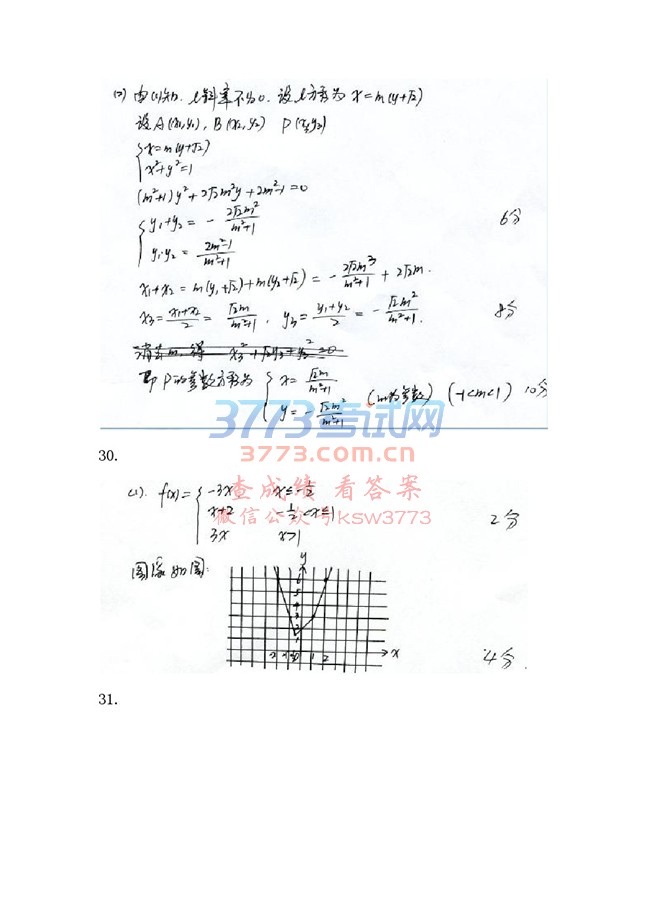 (2) 由(1)知, l斜率不为0. 设l方程为 x=m(y+√2)
设A(x1,y1), B(x2,y2) P(x3,y3)
{x=m(y+√2)
x²+y²=1
(m²+1)y²+2√2m²y+2m²-1=0
{y1+y2=-2√2m²/(m²+1) 6分
y1·y2=(2m²-1)/(m²+1)
x1+x2=m(y1+√2)+m(y2+√2)=-2√2m³/(m²+1)+2√2m.
x3=(x1+x2)/2=√2m/(m²+1), y3=(y1+y2)/2=-√2m²/(m²+1). 8分
即P的参数方程为 {x=√2m/(m²+1)
y=-√2m²/(m²+1) (m为参数) (-1<m<1) 10分
3773考试网
3773.com.cn
30.
查成绩 看答案
微信公众号ksw3773
(1). f(x)={-3x x≤-1/2
x+2 -1/2<x≤1 2分
3x x>1
图像如图:
y
6
5
4
3
2
1
1 2 x 4分
31.